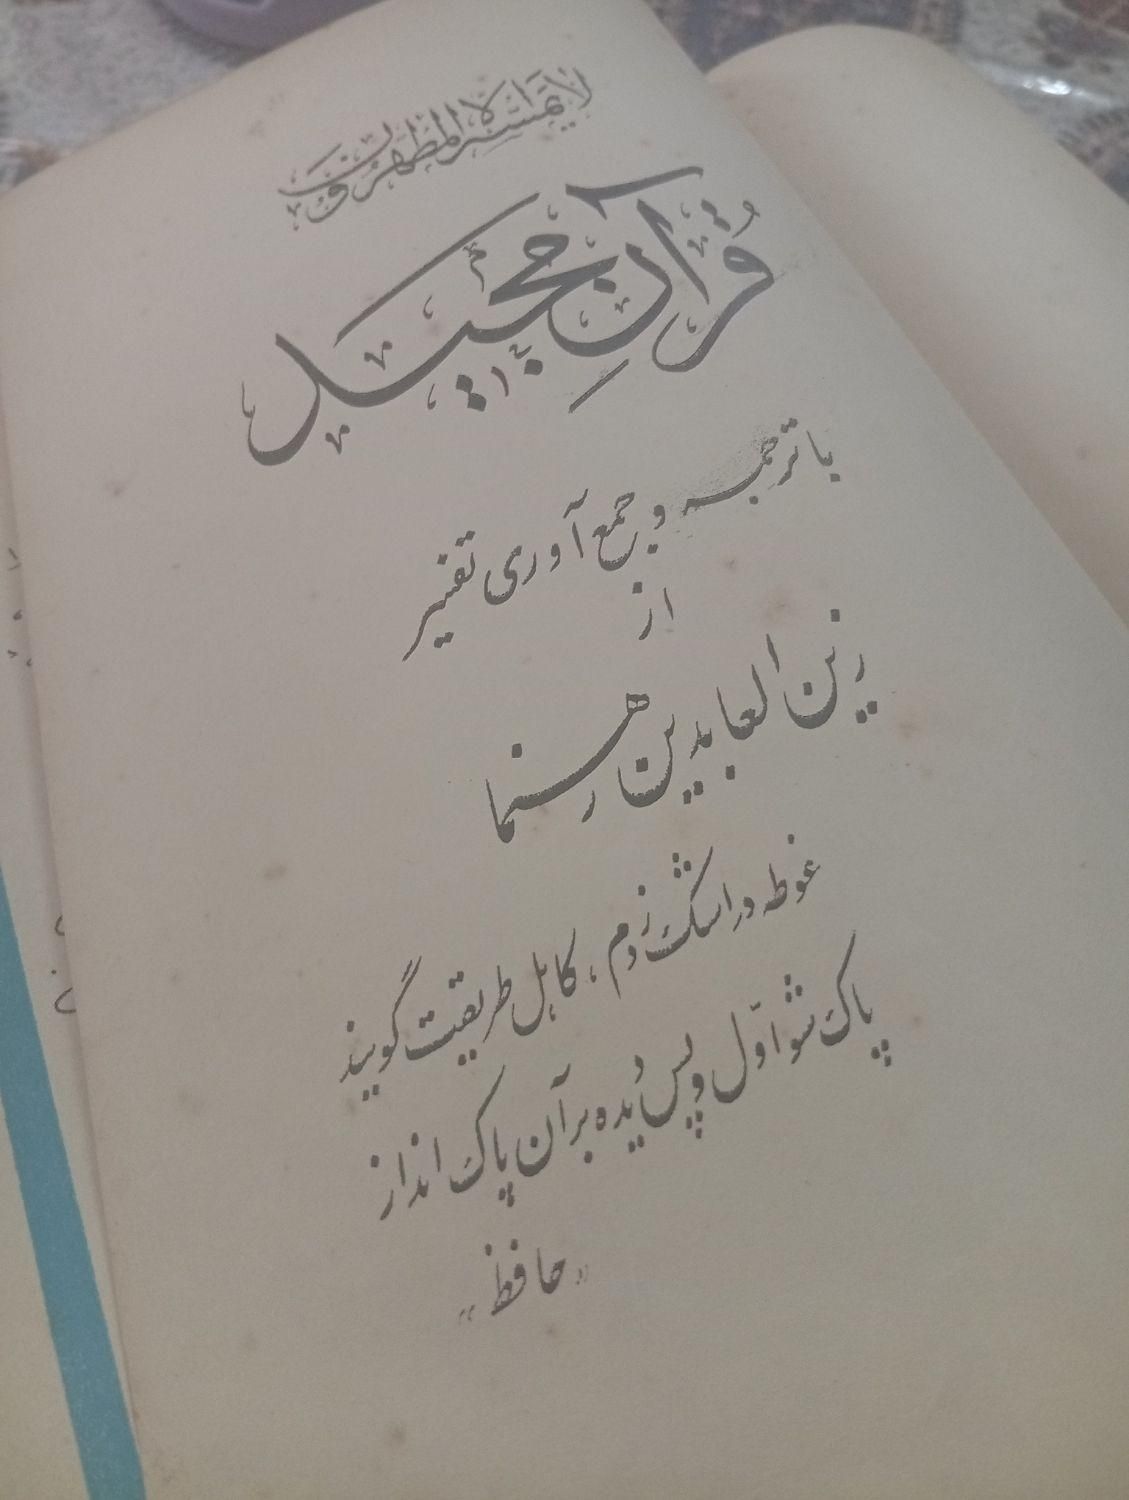 لا يمسه الا المطهرون
قُرآنِ مجید
با ترجمه و جمع آوری تفسیر
از
زین العابدین رهنما
غوطه در اشک زدم، کاهل طریقت گویند
پاک شو اوّل و پس دیده بر آن پاک انداز
«حافظ»